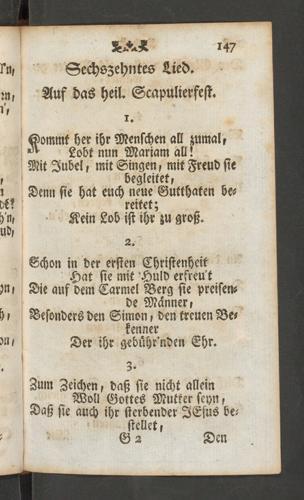 147
Sechszehntes Lied.
Auf das heil. Scapulierfest.
1.
Kommt her ihr Menschen all zumal,
Lobt nun Mariam all!
Mit Jubel, mit Singen, mit Freud sie
begleitet,
Denn sie hat euch neue Gutthaten be-
reitet;
Kein Lob ist ihr zu groß.
2.
Schon in der ersten Christenheit
Hat sie mit Huld erfreu't
Die auf dem Carmel Berg sie preisen-
de Männer,
Besonders den Simon, den treuen Be-
kenner
Der ihr gebühr'nden Ehr.
3.
Zum Zeichen, daß sie nicht allein
Woll Gottes Mutter seyn,
Daß sie auch ihr sterbender JEsus be-
stellet,
G 2 Den